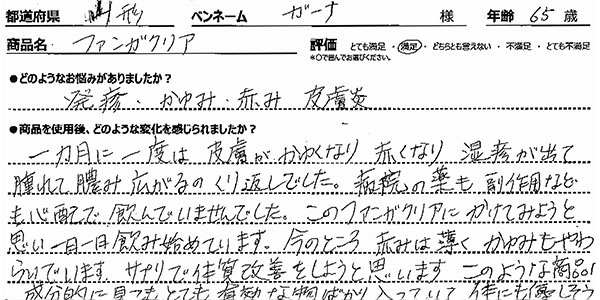 都道府県 山形 ペンネーム ガーナ 様 年齢 65 歳
商品名 ファンガクリア 評価 とても満足・満足・どちらとも言えない・不満足・とても不満足
*○で囲んでお選びください。
●どのようなお悩みがありましたか？
発疹・かゆみ・赤み 皮膚炎
●商品を使用後、どのような変化を感じられましたか？
一カ月に一度は 皮膚が かゆくなり 赤くなり 湿疹が出て
腫れて 膿み 広がるの くり返しでした。病院の薬も 副作用など
も心配で 飲んでいませんでした。このファンガクリアに かけてみようと
思い 一日一日 飲み始めています。今のところ 赤みは薄く かゆみもやわ
らいでいます。サプリで体質改善をしようと思います このような商品!
成分的に見てもとても 有効な物ばかり入っていて 体にも